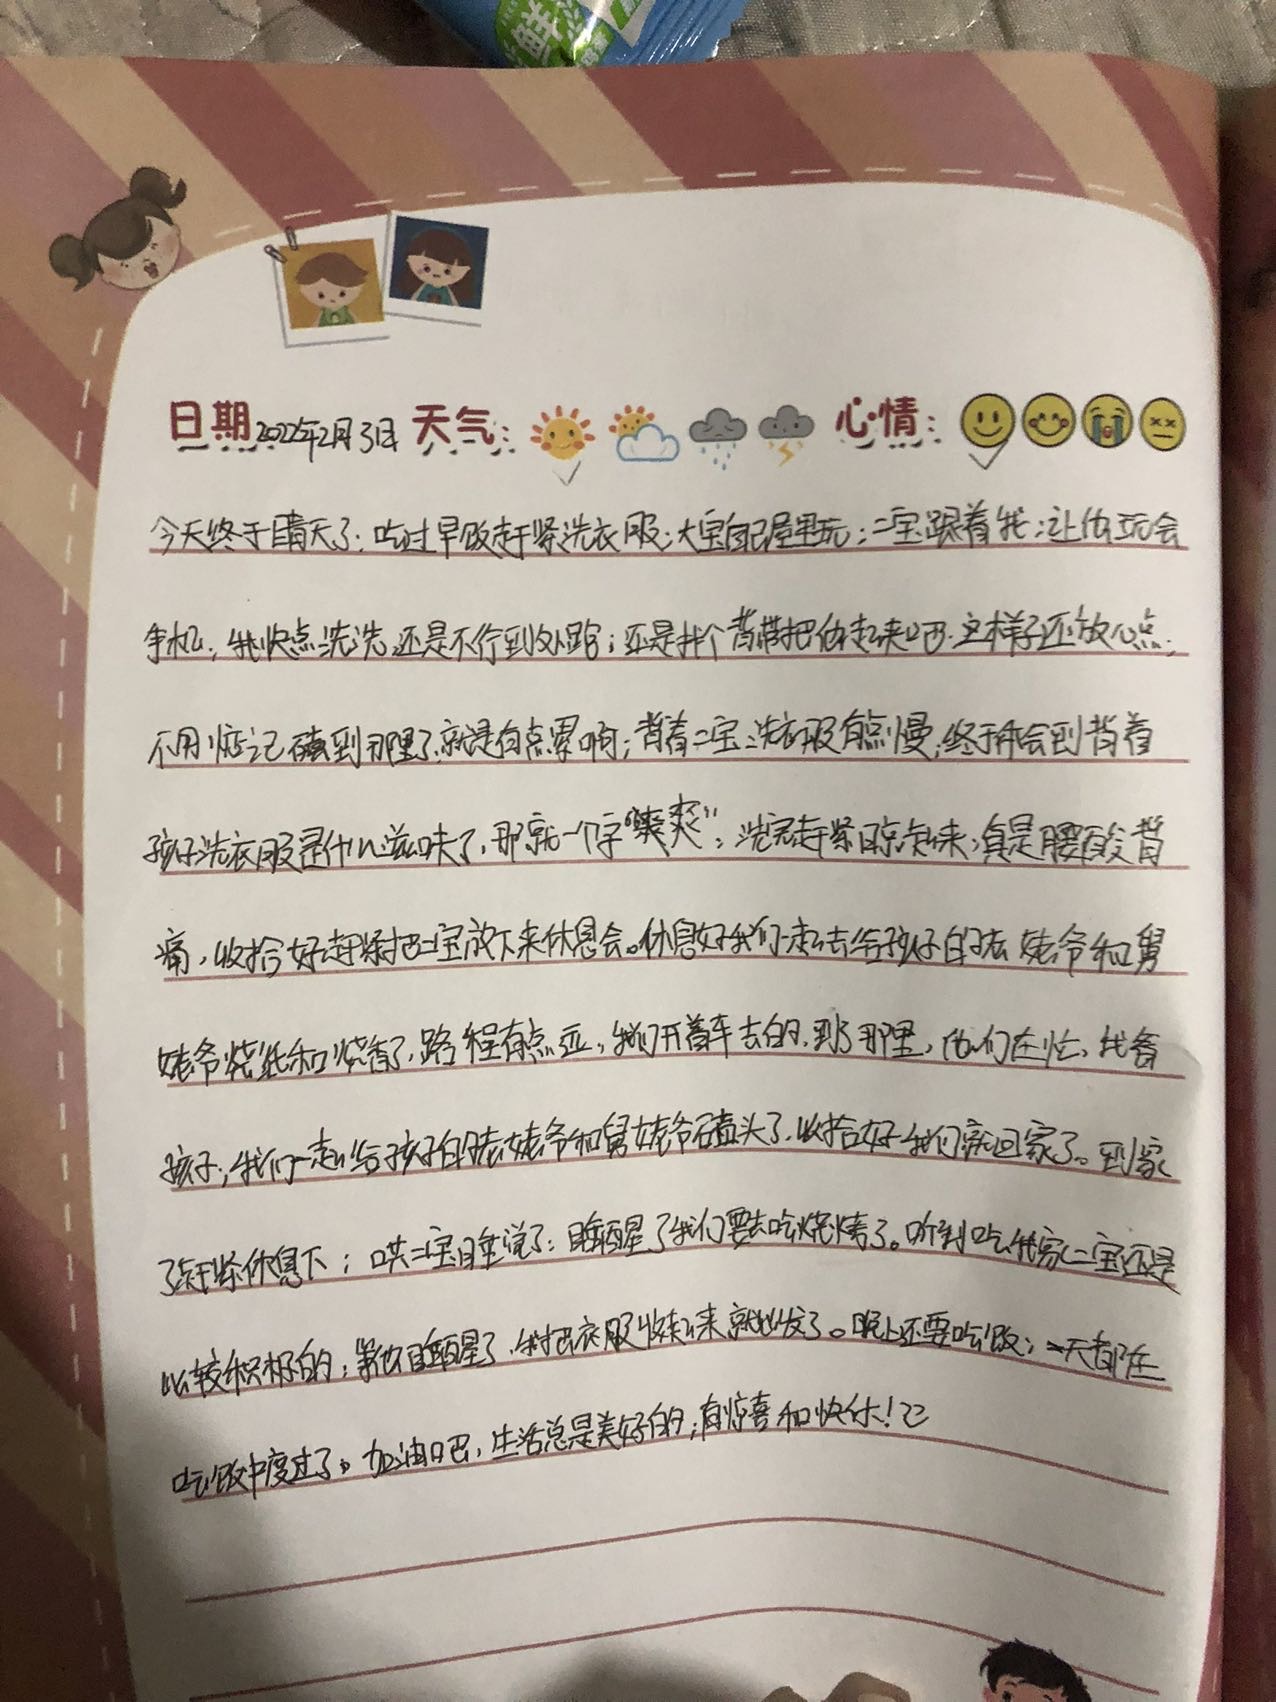 鲜
日期 2022年2月3日 天气： 心情：
今天终于晴天了；吃过早饭赶紧洗衣服；大宝自己屋里玩；二宝跟着我；让他玩会
手机，我快点洗洗，还是不行到处跑；还是找个背带把他起来吧，这样子还放心点，
不用惦记磕到那里了，就是有点累哟；背着二宝洗衣服有点慢，终于体会到背着
孩子洗衣服是什么滋味了，那就一个字“爽爽”；洗完赶紧晾起来；真是腰酸背
痛，收拾好赶紧把二宝放下来休息会。休息好我们一起去给孩子的老姥爷和舅
姥爷烧纸和烧香了，路程有点远，我们开着车去的，到了那里，他们在忙，我看
孩子；我们一起给孩子的老姥爷和舅姥爷磕头了，收拾好我们就回家了。到家
了赶紧休息下；哄二宝睡觉了；睡醒了我们要去吃烧烤了。听到吃我家二宝还是
比较积极的；等他睡醒了，我把衣服收起来就出发了。晚上还要吃饭；一天都在
吃饭中度过了。加油吧，生活总是美好的；有惊喜和快乐！